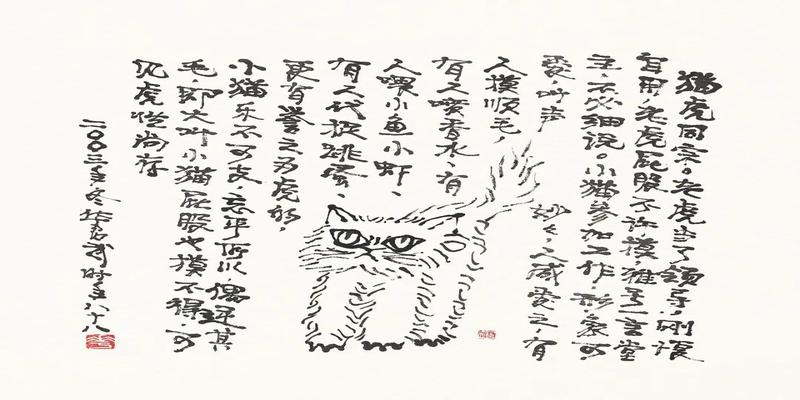 猫虎同宗。老虎当了领导，刚愎
自用，老虎屁股不许摸，雅号一言堂
主，不必细说。小猫参加工作，形象可
爱，叫声妙々，人咸爱之，有
人摸顺毛，
有人喷香水，有
人喂小鱼小虾，
有人代捉跳蚤，
更有誉之为虎形，
小猫乐不可支，忘乎所以，偶逆其
毛，即大叫小猫屁股也摸不得，可
见虎性尚存
二〇〇三年冬华君武时年八十八